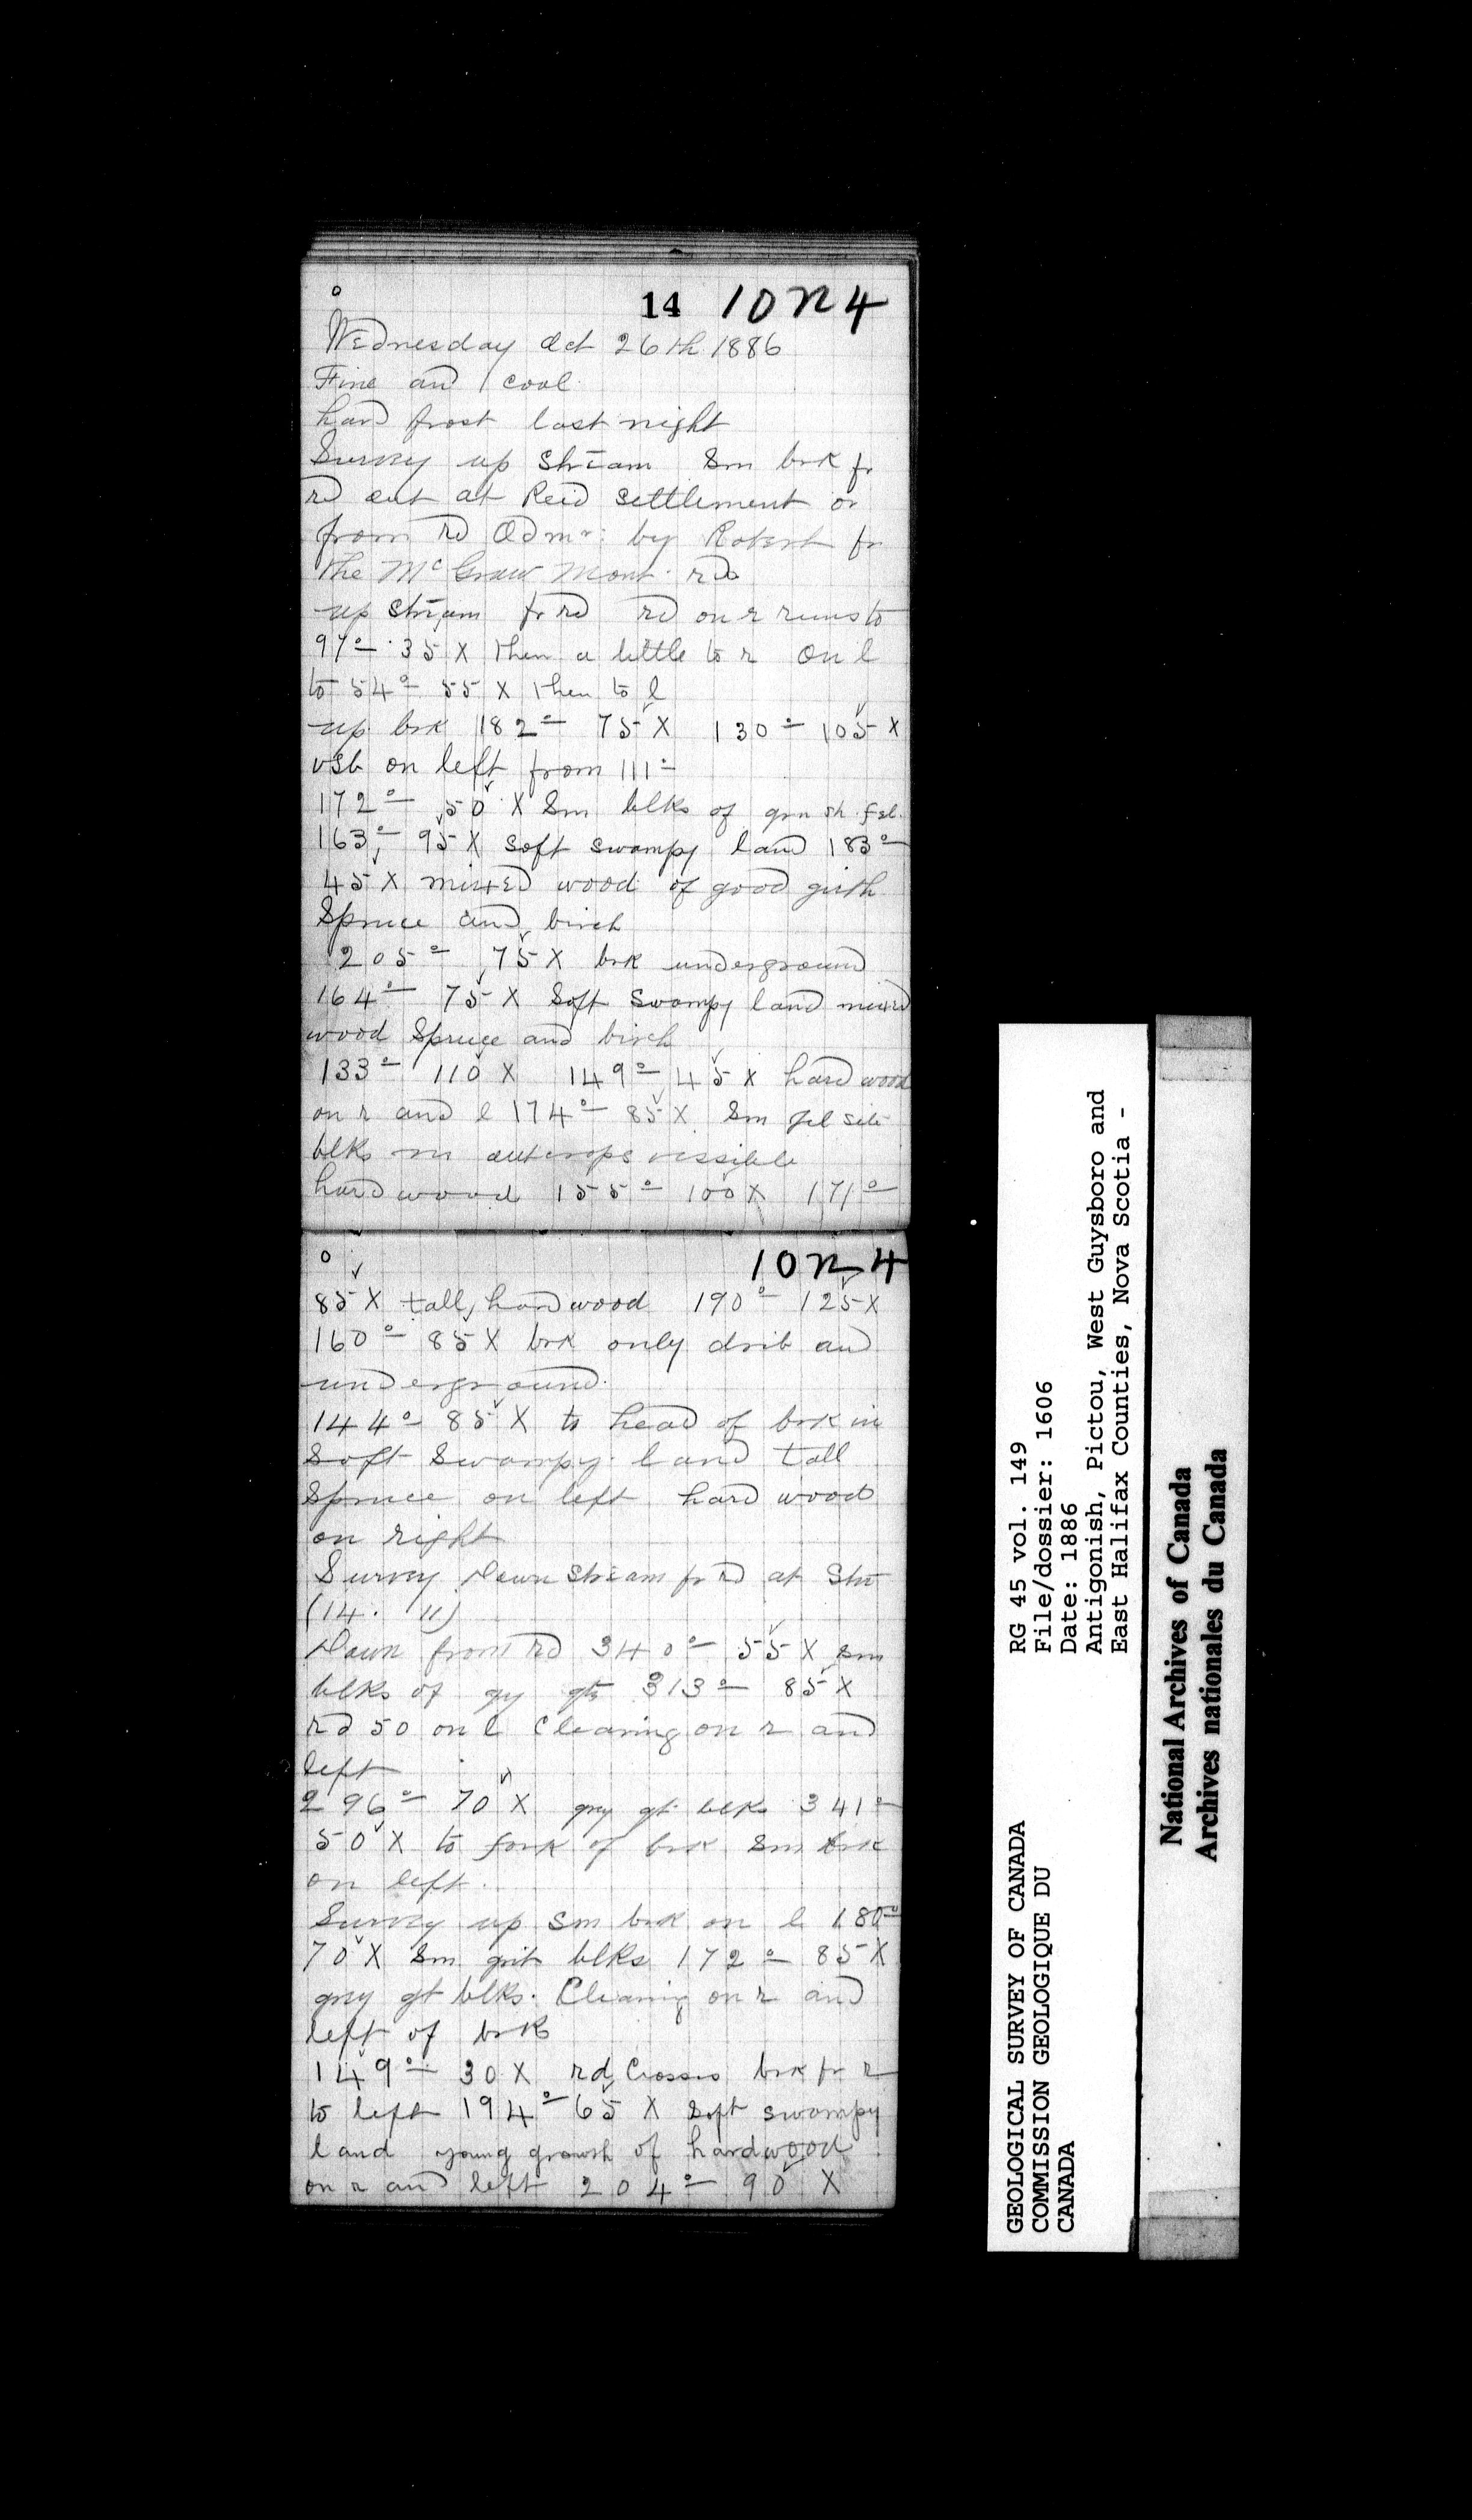 14 10 N 4
Wednesday Oct 26th 1886
Fine and cool
hard frost last night
Survey up stream Sm brk fr
rd out at Reid Settlement or
from rd Odmr: by Robert fr
the McGraw Mont. rd
up stream fr rd rd on r runs to
97° 35 X then a little to r On l
to 54° 55 X then to l
up brk 182° 75 X 130° 105 X
vsb on left from 111°
172° 50 X Sm blks of grn sh fel.
163° 95 X soft swampy land 183°
45 X mixed wood of good girth
Spruce and birch
205° 75 X brk underground
164° 75 X Soft Swampy land mixed
wood Spruce and birch
133° 110 X 149° 45 X hard wood
on r and l 174° 85 X Sm fel site
blks no outcrops vissible
hard wood 155° 100 X 171°
10 N 4
85 X tall hardwood 190° 125 X
160° 85 X brk only drib and
underground.
144° 85 X to head of brk in
Soft Swampy land tall
Spruce on left hard wood
on right
Survey down stream fr rd at Stn
(14. 11)
Down from rd 340° 55 X sm
blks of gy qts 313° 85 X
rd 50 on l Clearing on r and
left
296° 70 X grey gt blks 341°
50 X to fork of brk Sm brk
on left.
Survey up sm brk on l 180°
70 X Sm grit blks 172° 85 X
grey gt blks. Clearing on r and
left of brk
149° 30 X rd Crosses brk fr r
to left 194° 65 X Soft swampy
land young growth of hardwood
on r and left 204° 90 X
GEOLOGICAL SURVEY OF CANADA
COMMISSION GEOLOGIQUE DU
CANADA
RG 45 vol. 149
File/dossier: 1606
Date: 1886
Antigonish, Pictou, West Guysboro and
East Halifax Counties, Nova Scotia -
National Archives of Canada
Archives nationales du Canada